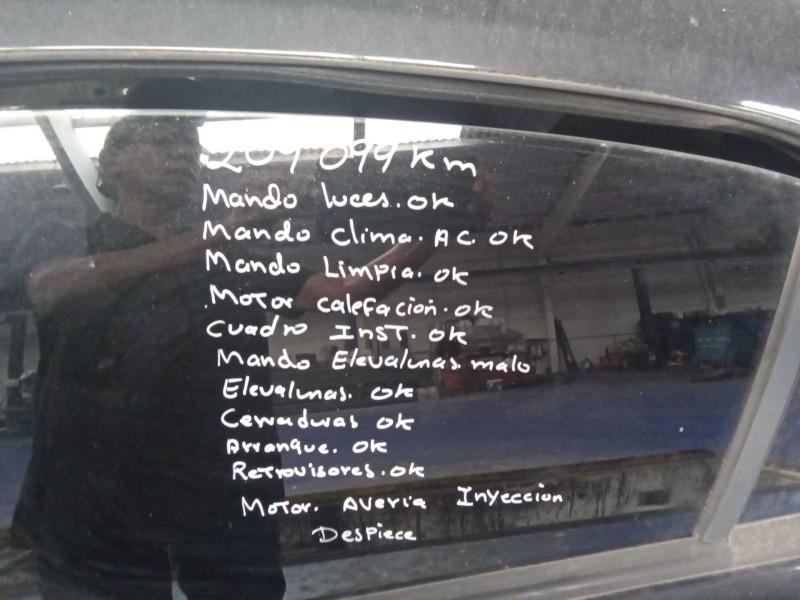 Km
Mando luces. OK
Mando Clima. AC. OK
Mando Limpia. OK
Motor calefacion. OK
Cuadro INST. OK
Mando Elevalunas. malo
Elevalunas. OK
Cerraduras OK
Arranque. OK
Retrovisores. OK
Motor. Averia Inyeccion
Despiece